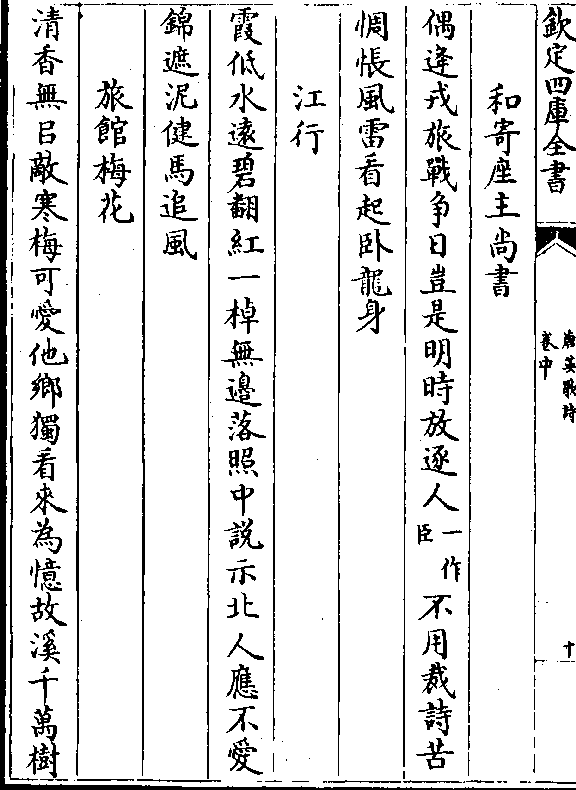 欽定四庫全書
唐英歌詩
卷中
十
和寄座主尚書
偶逢戎旅戰争日豈是明時放逐人一作臣不用裁詩苦
惆悵風雷看起卧龍身
江行
霞低水遠碧翻紅一棹無邊落照中説示北人應不愛
錦遮泥健馬追風
旅館梅花
清香無㠯敵寒梅可愛他鄉獨看來為憶故溪千萬樹